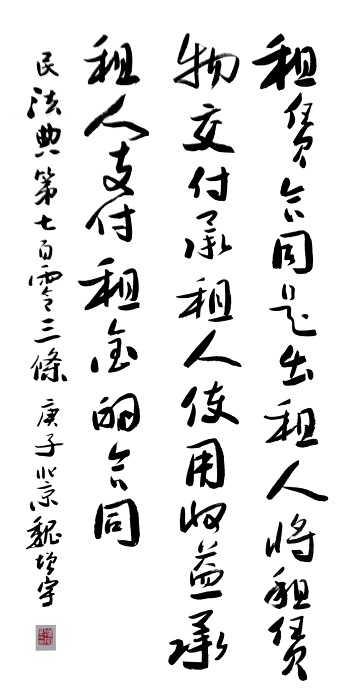 租赁合同是出租人将租赁
物交付承租人使用收益承
租人支付租金的合同
民法典第七百零三條 庚子北京魏增宇